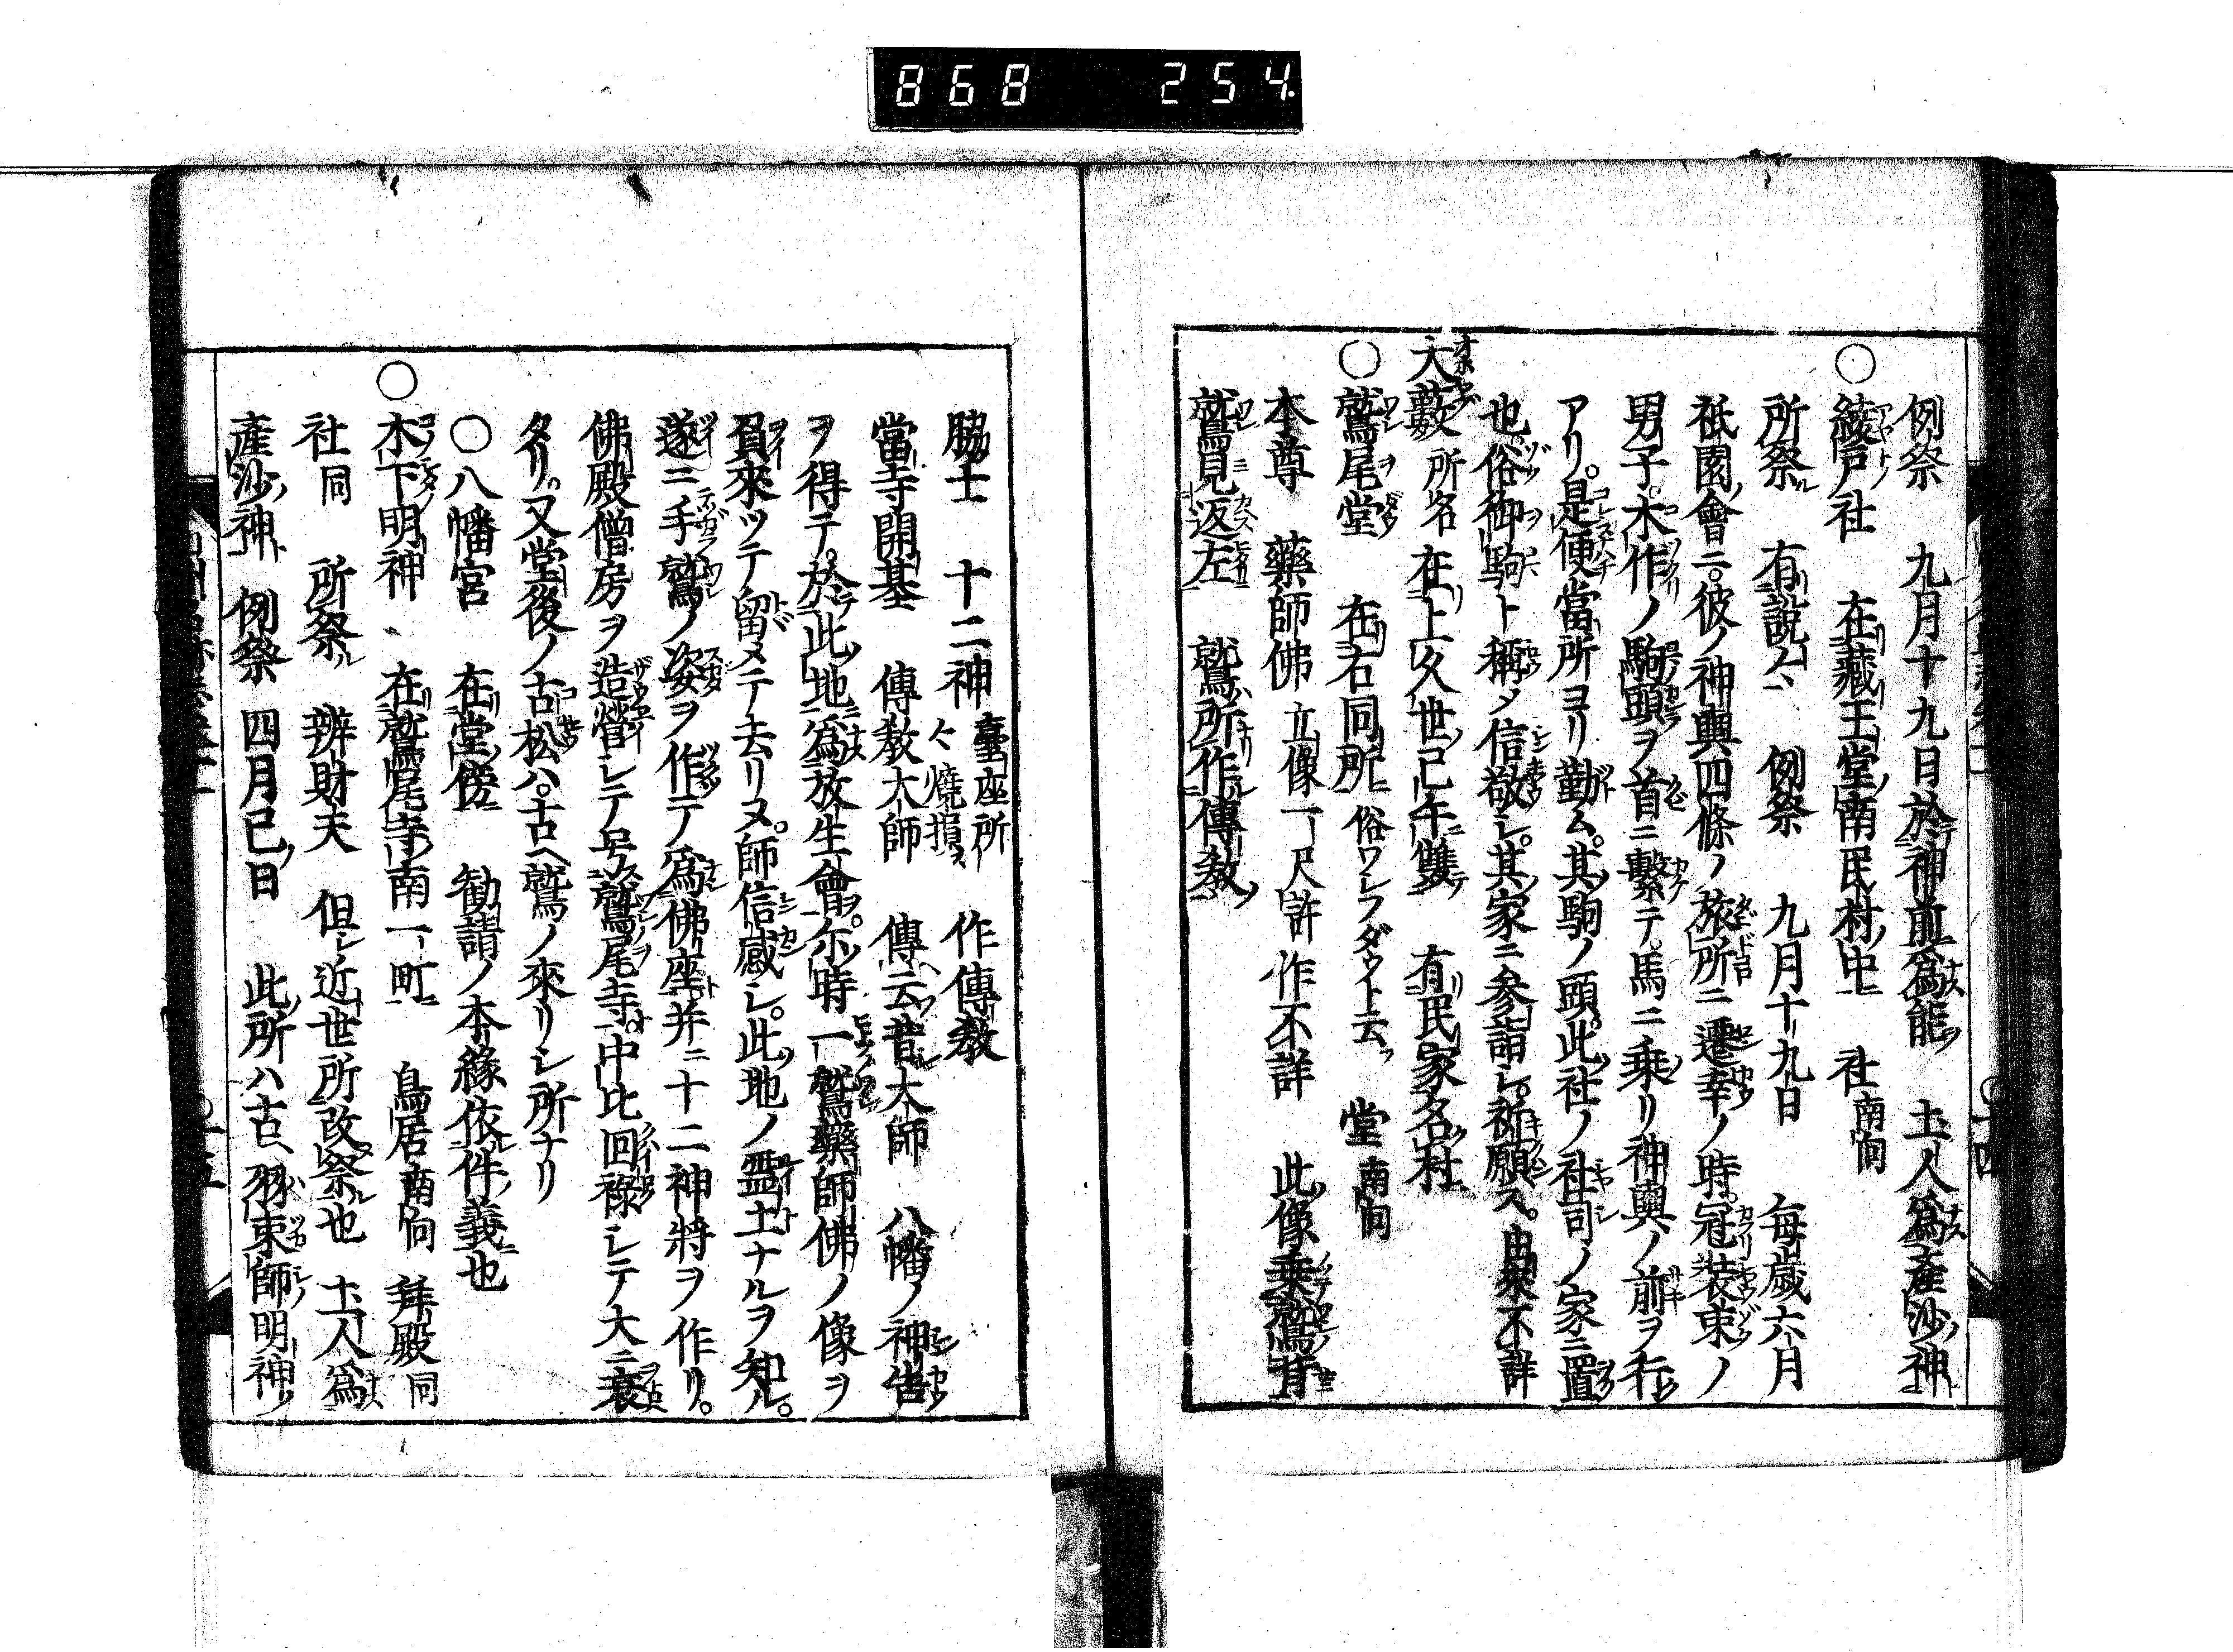 868 254
例祭 九月十九日於神前為能 土人為産沙神
○綾戸社 在藏王堂南民村中 社南向
所祭 有説 例祭 九月十九日 毎歳六月
祇園會ニ。彼ノ神輿四條ノ旅所ニ遷幸ノ時。冠装束ノ
男子。木作ノ駒頭ヲ首ニ繫テ。馬ニ乗リ神輿ノ前ヲ行
アリ。是便當所ヨリ勤ム。其駒ノ頭。此社ノ社司ノ家ニ置
也。俗御駒ト稱メ信敬シ。其家ニ参詣シ。祈願ス。由来不詳
大藪 所名 在上久世巳午雙 有民家名村
○鷲尾堂 在右同所 俗ワシフダウト云フ 堂南向
本尊 藥師佛 立像一尺許 作不詳 此像乗鷲背
鷲見返左 鷲所作傳教
脇士 十二神 臺座所々焼損ス 作傳教
當寺開基 傳教大師 傳云昔大師 八幡ノ神告
ヲ得テ。於此地為放生會。尓時一鷲藥師佛ノ像ヲ
負來ツテ留メテ去リヌ。師信感シ。此地ノ霊土ナルヲ知ル。
遂ニ手鷲ノ姿ヲ作テ為佛座。并ニ十二神將ヲ作リ。
佛殿僧房ヲ造營シテ号鷲尾寺。中比回禄シテ大ニ衰
タリ。又堂後ノ古松ハ。古ヘ鷲ノ來リシ所ナリ
○八幡宮 在堂傍 勧請ノ本緣依件義也
○木下明神 在鷲尾寺南一町 鳥居南向 拜殿同
社同 所祭 辨財天 但シ近世所改祭也 土人為
産沙神 例祭 四月己日 此所ハ古ヘ羽束師明神ノ